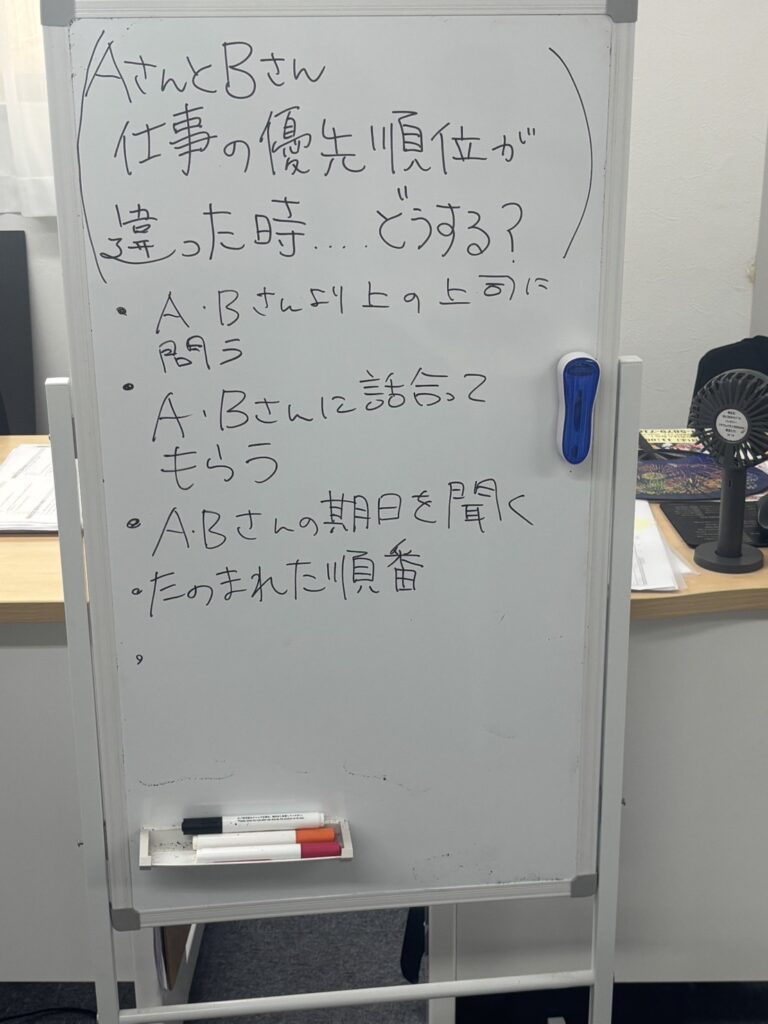 AさんとBさん
仕事の優先順位が
違った時....どうする?
・A・Bさんより上の上司に
問う
・A・Bさんに話合って
もらう
・A・Bさんの期日を聞く
・たのまれた順番
・